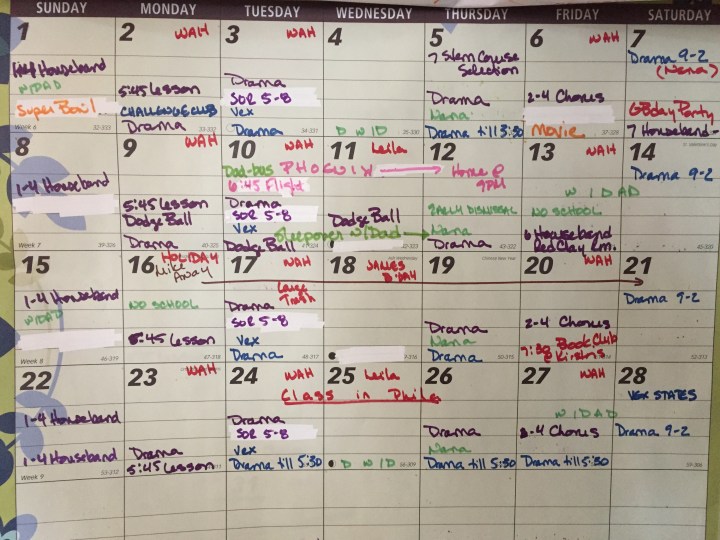 SUNDAY MONDAY TUESDAY WEDNESDAY THURSDAY FRIDAY SATURDAY
1
Houseband
W/DAD
Super Bowl
Week 6 32-333
2 WAH
5:45 Lesson
CHALLENGE CLUB
Drama 33-332
3 WAH
Drama
SOR 5-8
Vex
Drama 34-331
4
D W/D 35-330
5
7 Stem Course
Selection
Drama
Nana
Drama till 3:30
6 WAH
2-4 Chorus
Movie 37-328
7
Drama 9-2
(Nana)
GBday Party
7 Houseband
8
1-4 Houseband
Week 7 39-326
9 WAH
5:45 Lesson
Dodge Ball
Drama 40-325
10 WAH
Dad-bas PHOENIX
6:45 Flight
Drama
SOR 5-8
Vex
Sleepover w/Dad
Dodge Ball 41-324
11 Leila
Dodge Ball
42-323
12
Home @
9PM
EARLY DISMISSAL
Nana
Drama 43-322
13 WAH
W/DAD
NO SCHOOL
6 Houseband
Red Clay rm.
14
Drama 9-2
45-320
15
1-4 Houseband
W/DAD
Week 8 46-319
16 HOLIDAY
Mike
Away
NO SCHOOL
5:45 Lesson
47-318
17 WAH
Large
Trash
Drama
SOR 5-8
Vex
Drama 48-317
18 JAMES
B'DAY
19
Drama
Nana
Drama 50-315
20 WAH
2-4 Chorus
7:30 Book Club
@ Kirstins
51-314
21
Drama 9-2
52-313
22
1-4 Houseband
1-4 Houseband
Week 9 53-312
23 WAH
Drama
5:45 Lesson
24 WAH
Class in Phila
Drama
SOR 5-8
Vex
Drama till 5:30
25 Leila
D W/D 56-309
26
Drama
Nana
Drama till 5:30
27 WAH
W/DAD
2-4 Chorus
Drama till 5:30
28
VEX STATES
Drama 9-2
59-306